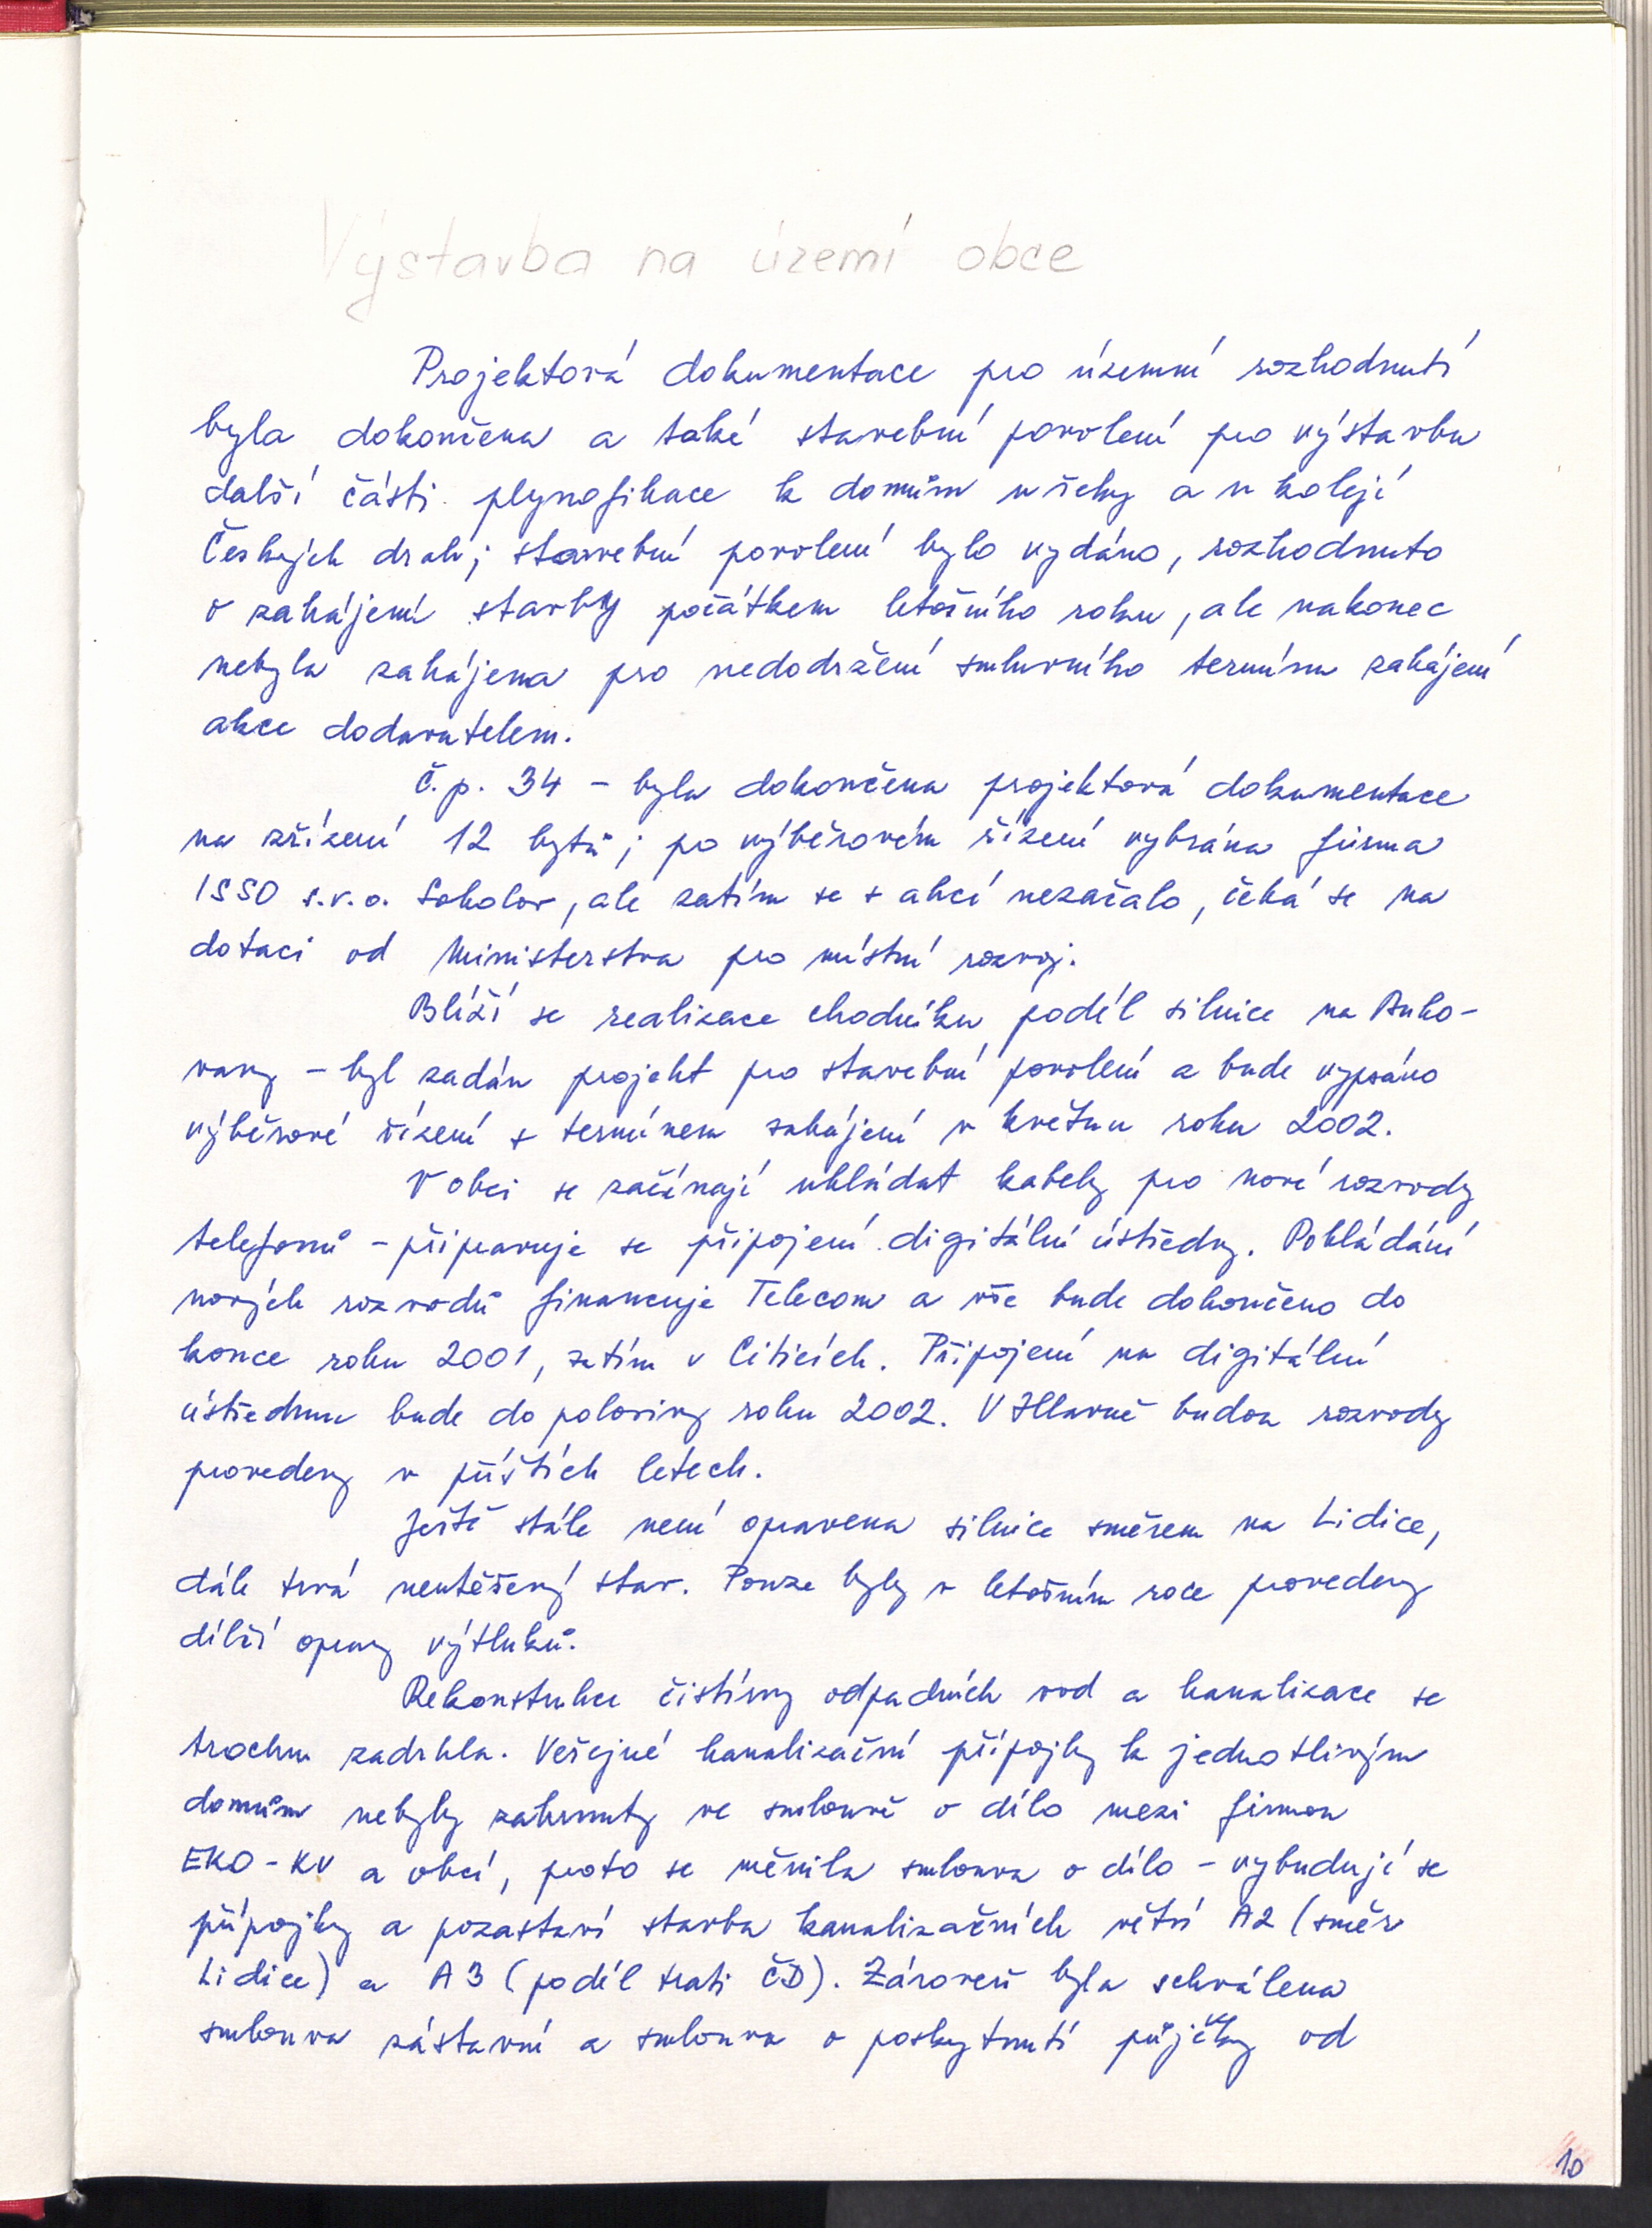 Výstavba na území obce
Projektová dokumentace pro územní rozhodnutí
byla dokončena a také stavební povolení pro výstavbu
další části plynofikace k domům u řeky a u kolejí
Českých drah; stavební povolení bylo vydáno, rozhodnuto
o zahájení stavby počátkem letošního roku, ale nakonec
nebyla zahájena pro nedodržení smluvního termínu zahájení
akce dodavatelem.
Č.p. 34 - byla dokončena projektová dokumentace
na zřízení 12 bytů; po výběrovém řízení vybrána firma
ISSO s.r.o. Sokolov, ale zatím se s akcí nezačalo, čeká se na
dotaci od Ministerstva pro místní rozvoj.
Blíží se realizace chodníku podél silnice na Buko-
vany - byl zadán projekt pro stavební povolení a bude vypsáno
výběrové řízení s termínem zahájení v květnu roku 2002.
V obci se začínají ukládat kabely pro nové rozvody
telefonů - připravuje se připojení digitální ústředny. Pokládání
nových rozvodů financuje Telecom a vše bude dokončeno do
konce roku 2001, zatím v Citicích. Připojení na digitální
ústřednu bude do poloviny roku 2002. V Hlavně budou rozvody
provedeny v příštích letech.
Ještě stále není opravena silnice směrem na Lidice,
dále trvá neutěšený stav. Pouze byly v letošním roce provedeny
dílčí opravy výtluků.
Rekonstrukce čistírny odpadních vod a kanalizace se
trochu zadrhla. Veřejné kanalizační přípojky k jednotlivým
domům nebyly zahrnuty ve smlouvě o dílo mezi firmou
EKO-KV a obcí, proto se měnila smlouva o dílo - vybudují se
přípojky a pozastaví stavba kanalizačních větví A2 (směr
Lidice) a A3 (podél trati ČD). Zároveň byla schválena
smlouva zástavní a smlouva o poskytnutí půjčky od
10